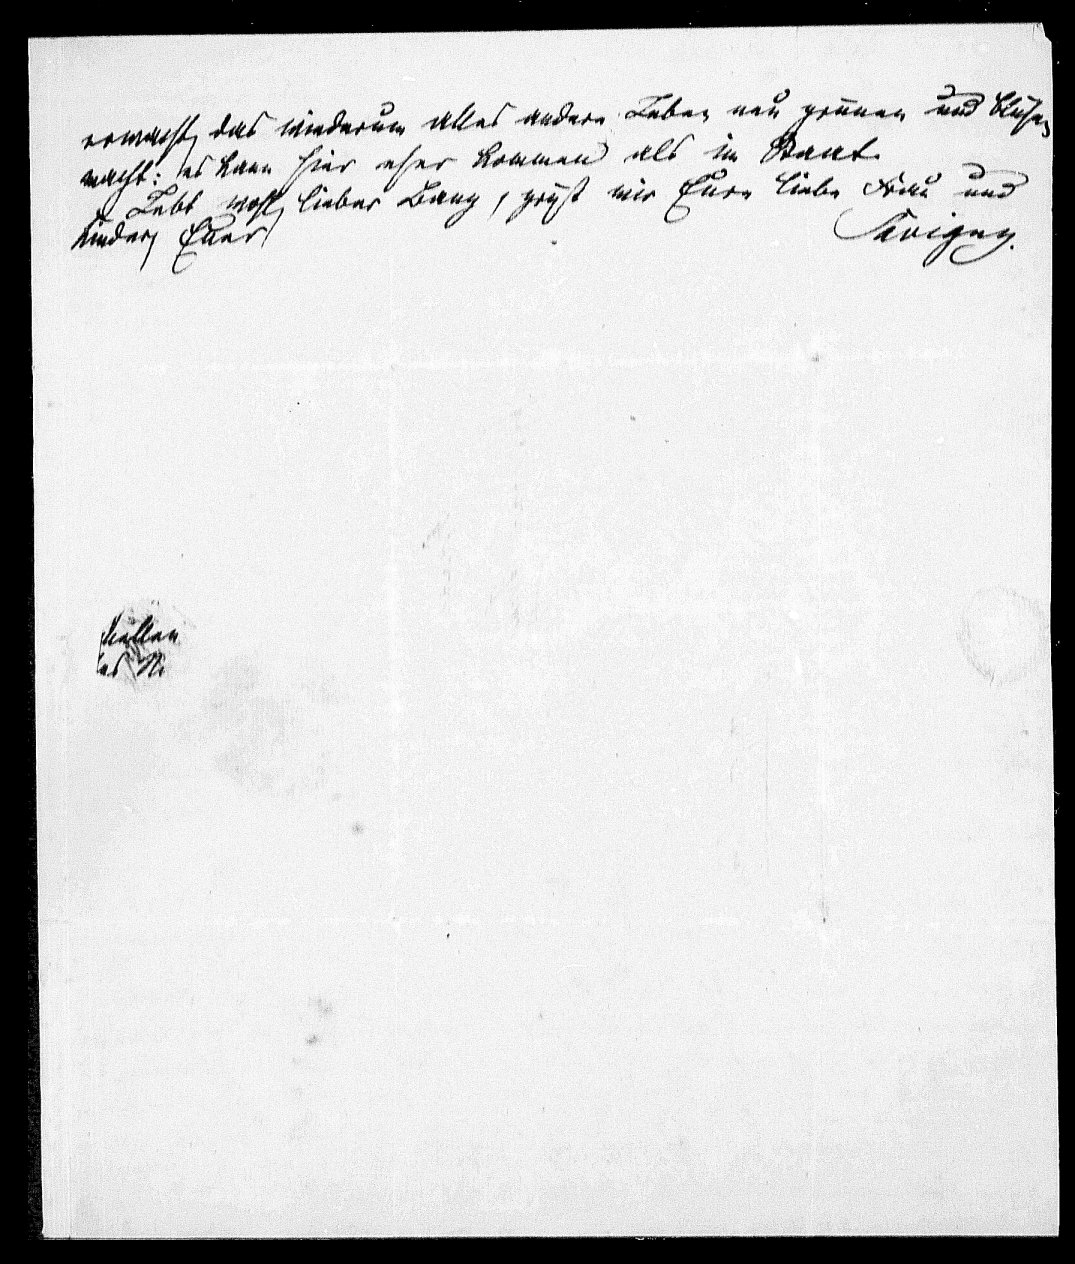 erwacht, das wiederum alles andere Leben neu grünen und blühen
macht: es kann hier eher kommen als im Staat.
Lebt wohl, lieber Bang, grüßt mir Eure liebe Frau und
Kinder. Euer Savigny.
halten
es